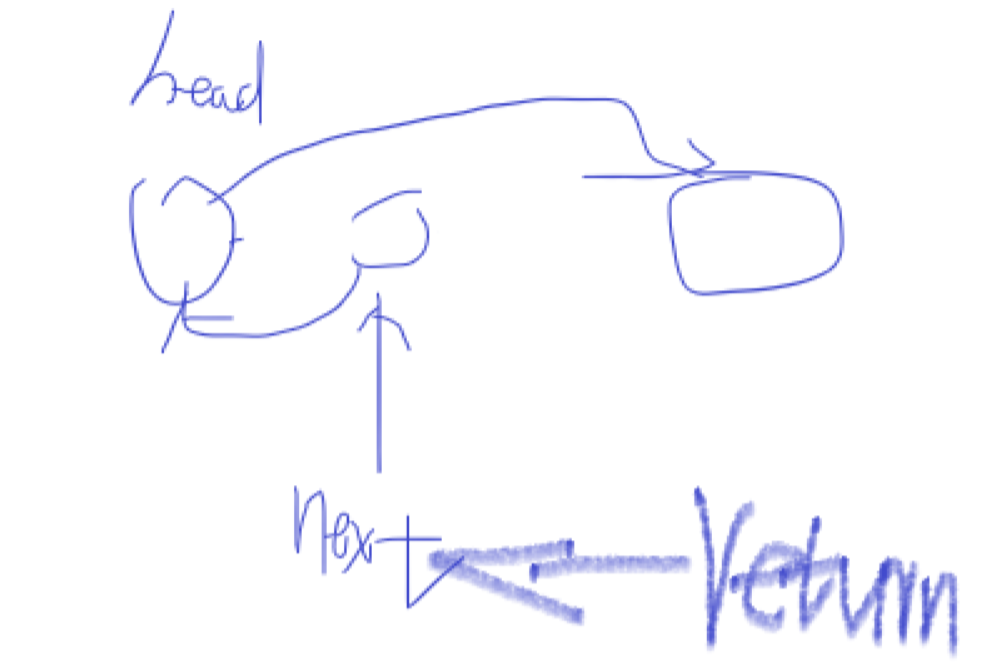 head
next
return